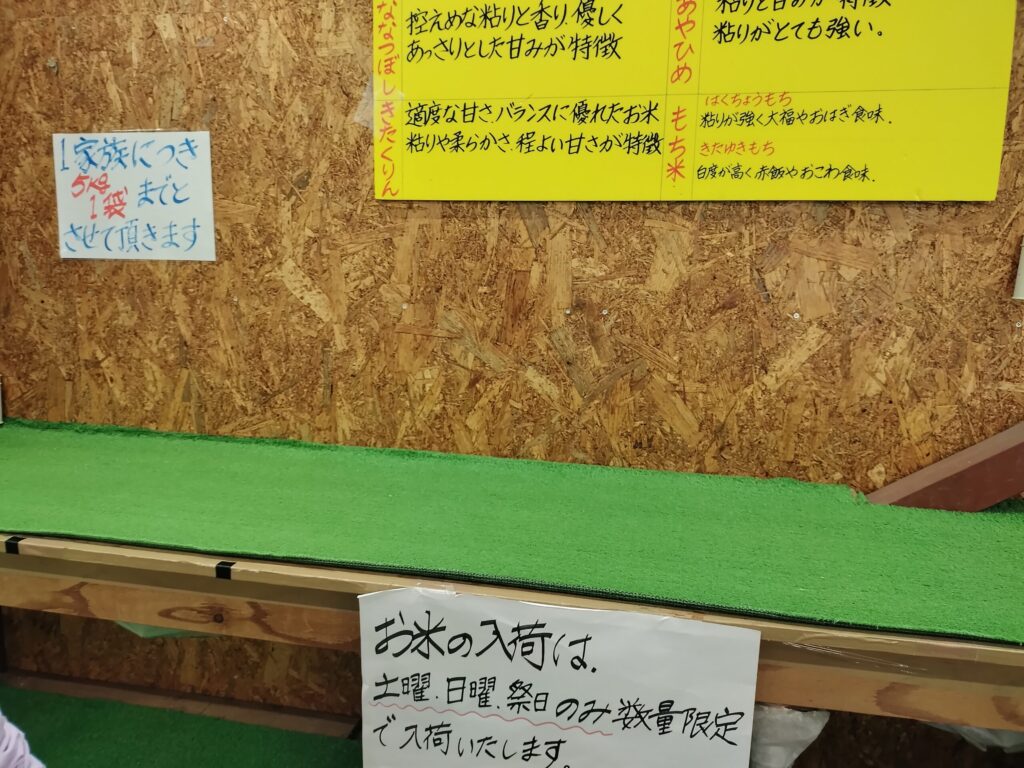 1家族につき
5kg
1袋までと
させて頂きます
ななつぼし
控えめな粘りと香り、優しく
あっさりとした甘みが特徴
きたくりん
適度な甘さ、バランスに優れたお米
粘りや柔らかさ、程よい甘さが特徴
あやひめ
粘りと甘みが特徴
粘りがとても強い。
もち米
はくちょうもち
粘りが強く大福やおはぎ食味.
きたゆきもち
白度が高く赤飯やおこわ食味.
お米の入荷は.
土曜、日曜、祭日のみ数量限定
で入荷いたします。